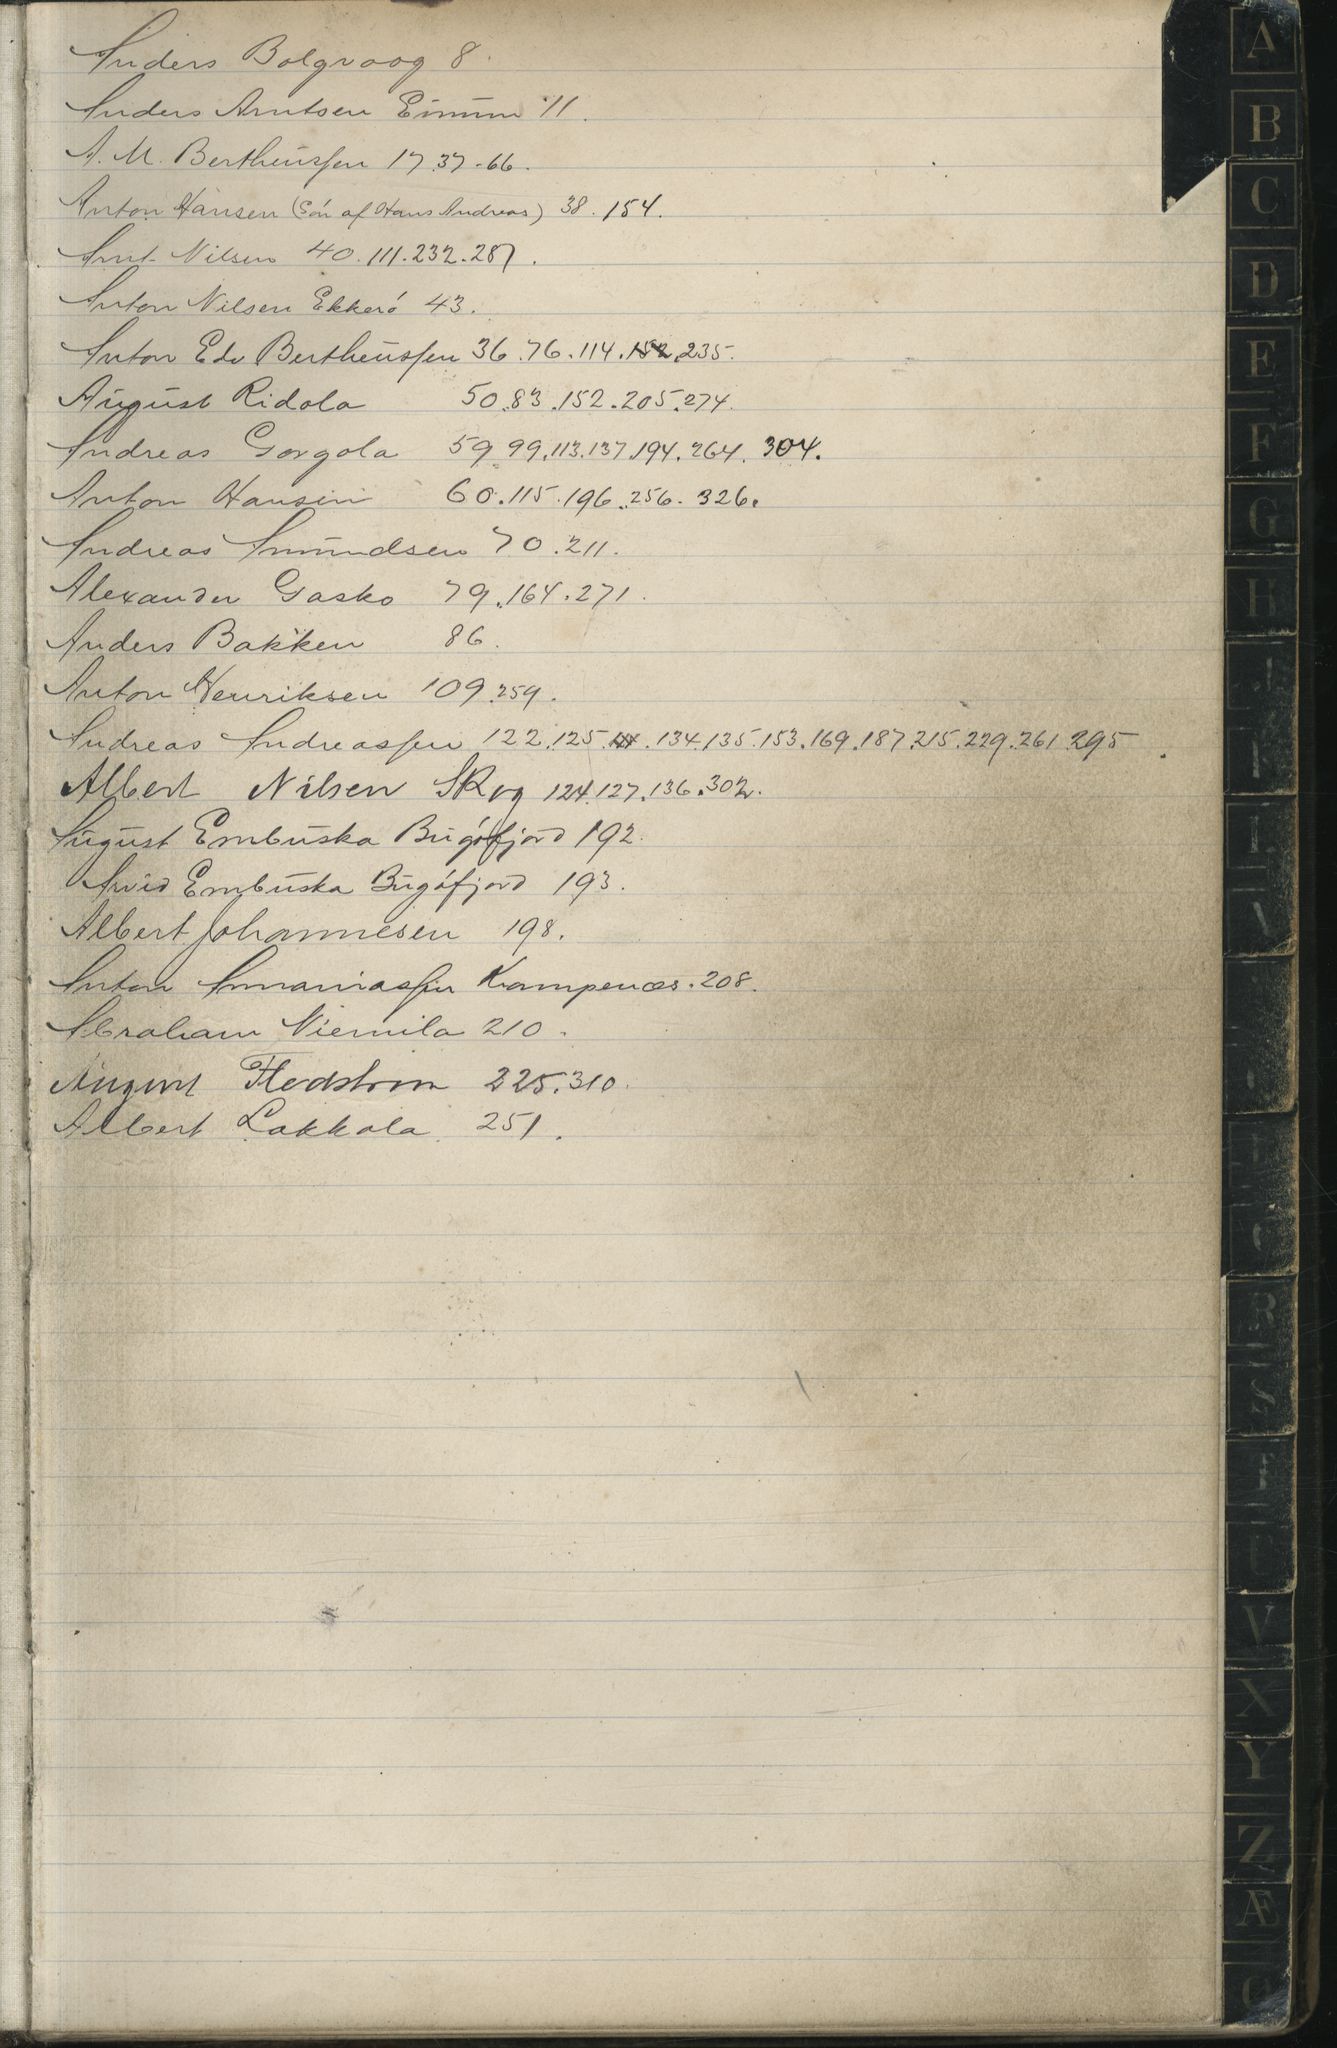 Anders Bolgvaag 8.
Anders Arntsen 11.
A. M. Bertheussen 17.37.66.
Anton Hansen (Sön af Hans Andreas) 38.154.
Arnt Nilsen 40.111.232.287.
Anton Nilsen Ekkerö 43.
Anton Edv Bertheussen 36.76.114.152.235.
August Ridola 50.83.152.205.274.
Andreas Gorgola 59.99.113.137.194.264.304.
Anton Hansen 60.115.196.256.326.
Andreas Amundsen 70.211.
Alexander Gasko 79.164.271.
Anders Bakken 86.
Anton Henriksen 109.259.
Andreas Andreassen 122.125.134.135.153.169.187.215.229.261.295.
Albert Nilsen Skog 124.127.136.302.
August Embuska Bugöfjord 192.
Arvid Embuska Bugöfjord 193.
Albert Johannesen 198.
Anton Annaniassen Kampenæs.208.
Abraham Niemila 210.
August Hedstrom 225.310.
Albert Lakkala 251.
A
B
C
D
E
F
G
H
R
S
U
V
X
Y
Z
Æ